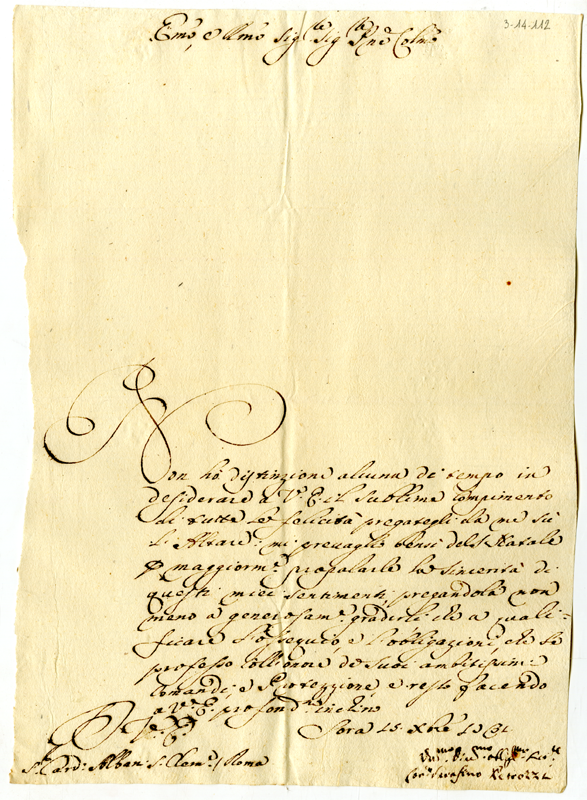 3-14-112
Emo, e Rmo Sigre Sigre Pne Colmo
Non hò distinzione alcuna di tempo in
desiderare a V. E. il sublime compimento
di tutte le felicità pregategli da me sù
l'Altare: mi prevaglio bensì del S. Natale
p maggiormte propalarle la sincerità di
questi miei sentimenti, pregandola non
meno a generosamte gradirli che a quali=
ficare l'ossequio, e l'obbligazioni, che le
professo coll'onore de suoi ambitissimi
comandi, e Protezzione, e resto facendo
a V. E. profondmo inchino
Di V. E. Sora 15 Xbre
S. Card: Alban S. Clemte / Roma
Serafino Petrozzi